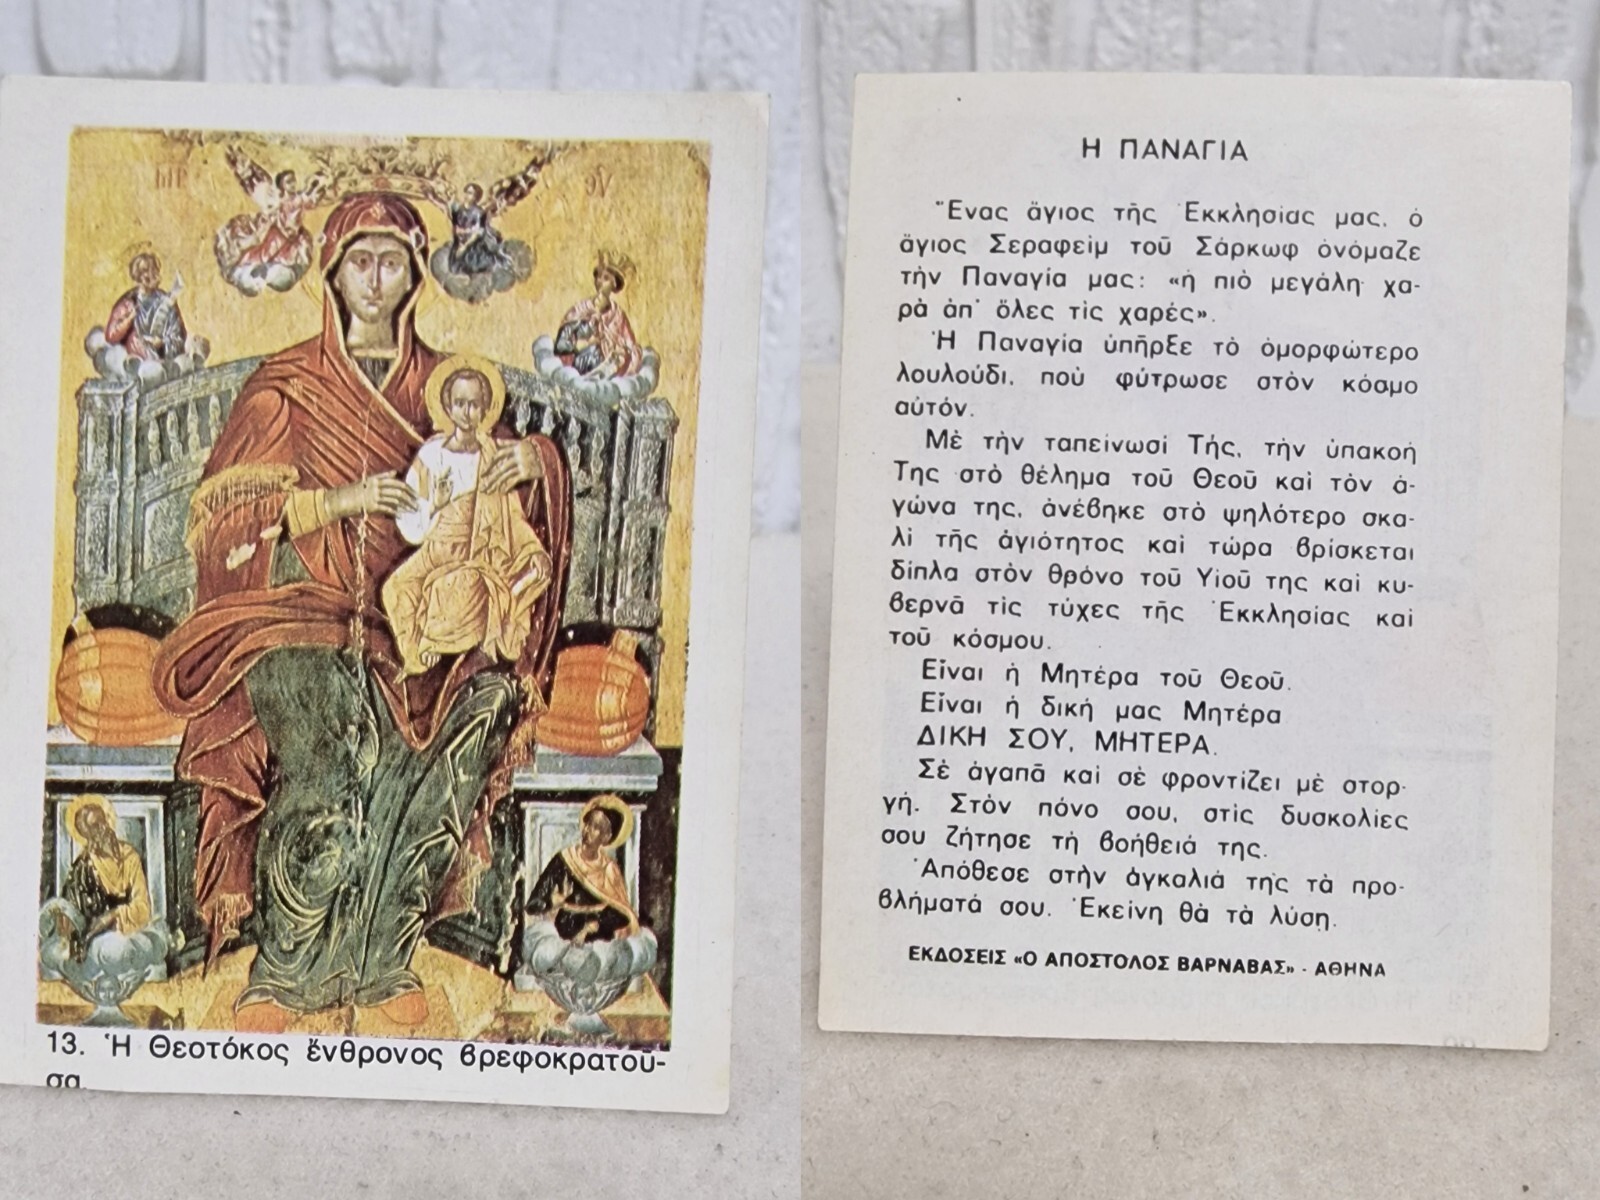 ΜΡ
ΘΥ
13. Ἡ Θεοτόκος ἔνθρονος βρεφοκρατοῦ-
σα.
Η ΠΑΝΑΓΙΑ
Ἕνας ἅγιος τῆς Ἐκκλησίας μας, ὁ
ἅγιος Σεραφεὶμ τοῦ Σάρκωφ ὀνόμαζε
τὴν Παναγία μας: «ἡ πιὸ μεγάλη χα-
ρὰ ἀπ' ὅλες τὶς χαρές».
Ἡ Παναγία ὑπῆρξε τὸ ὀμορφώτερο
λουλούδι, ποὺ φύτρωσε στὸν κόσμο
αὐτόν.
Μὲ τὴν ταπείνωσί Τής, τὴν ὑπακοή
Της στὸ θέλημα τοῦ Θεοῦ καὶ τὸν ἀ-
γώνα της, ἀνέβηκε στὸ ψηλότερο σκα-
λὶ τῆς ἁγιότητος καὶ τώρα βρίσκεται
δίπλα στὸν θρόνο τοῦ Υἱοῦ της καὶ κυ-
βερνᾶ τὶς τύχες τῆς Ἐκκλησίας καὶ
τοῦ κόσμου.
Εἶναι ἡ Μητέρα τοῦ Θεοῦ.
Εἶναι ἡ δική μας Μητέρα
ΔΙΚΗ ΣΟΥ, ΜΗΤΕΡΑ.
Σὲ ἀγαπᾶ καὶ σὲ φροντίζει μὲ στορ-
γή. Στὸν πόνο σου, στὶς δυσκολίες
σου ζήτησε τὴ βοήθειά της.
Ἀπόθεσε στὴν ἀγκαλιά της τὰ προ-
βλήματά σου. Ἐκείνη θὰ τὰ λύση.
ΕΚΔΟΣΕΙΣ «Ο ΑΠΟΣΤΟΛΟΣ ΒΑΡΝΑΒΑΣ» - ΑΘΗΝΑ